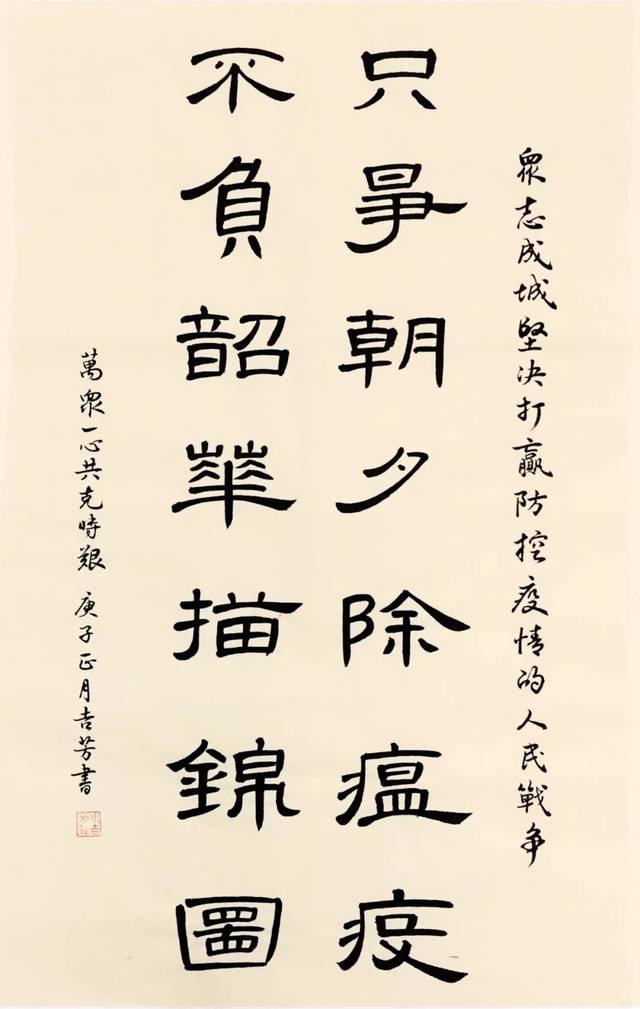 眾志成城堅決打贏防控疫情的人民戰爭
只爭朝夕除瘟疫
不負韶華描錦圖
萬眾一心共克時艱 庚子正月吉芳書